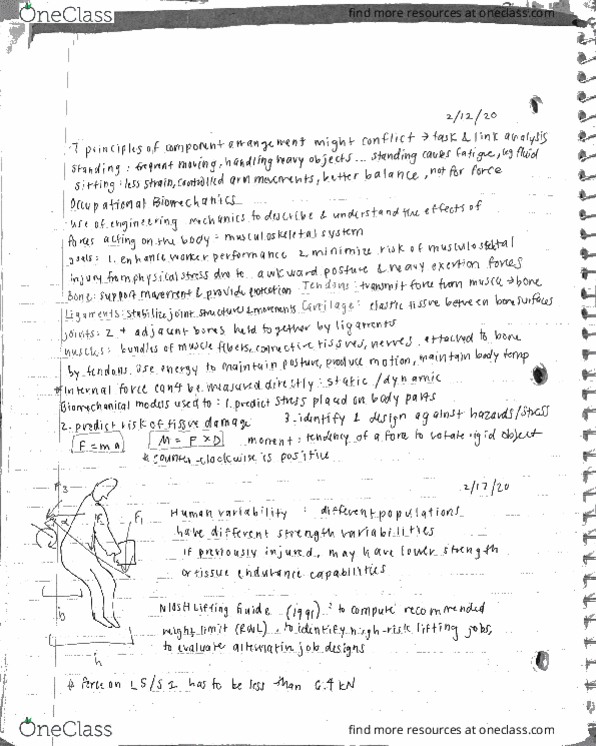 OneClass
find more resources at oneclass.com
2/12/20
7 principles of component arrangement might conflict → task & link analysis
standing: frequent moving, handling heavy objects ... standing causes fatigue, leg fluid
sitting: less strain, controlled arm movements, better balance, not for force
Occupational Biomechanics
use of engineering mechanics to describe & understand the effects of
forces acting on the body = musculoskeletal system
goals: 1. enhance worker performance 2. minimize risk of musculosketal
injury from physical stress due to awkward posture & heavy exertion forces
Bone: support movement & provide protection Tendons: transmit force from muscle → bone
Ligaments: stabilize joint structures & movements Cartilage: elastic tissue between bone surfaces
joints: 2 + adjacent bones held together by ligaments
muscles: bundles of muscle fibers, connective tissues, nerves. attached to bone
by tendons. use energy to maintain posture, produce motion, maintain body temp
*Internal force can't be measured directly: static / dynamic
Biomechanical models used to: 1. predict stress placed on body parts
2. predict risk of tissue damage 3. identify & design against hazards/stress
F = ma M = F × D moment: tendency of a force to rotate rigid object
* counter-clockwise is positive
2/17/20
Human variability: different populations
have different strength variabilities
if previously injured, may have lower strength
or tissue endurance capabilities
F1
α
b
h
NIOSH Lifting Guide (1991): to compute recommended
weight limit (RWL), to identify high-risk lifting jobs,
to evaluate alternativ job designs
* force on L5/S1 has to be less than 6.4 kN
OneClass
find more resources at oneclass.com